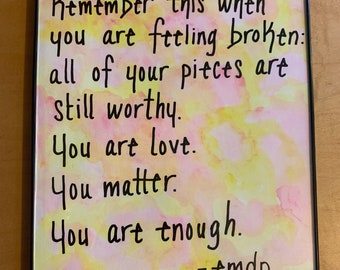 Remember this when
you are feeling broken:
all of your pieces are
still worthy.
You are love.
You matter.
You are enough.
-emdp